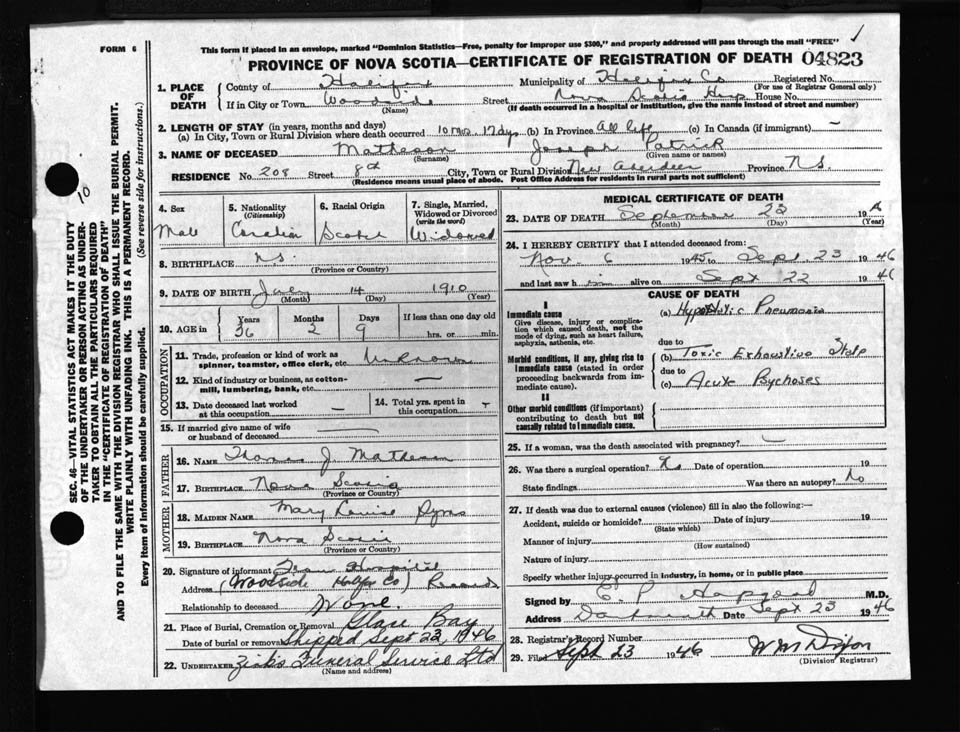 FORM 6
This form if placed in an envelope, marked "Dominion Statistics—Free, penalty for improper use $300," and properly addressed will pass through the mail "FREE"
PROVINCE OF NOVA SCOTIA—CERTIFICATE OF REGISTRATION OF DEATH 04823
1. PLACE OF DEATH
County of Halifax Municipality of Halifax Co Registered No.
(For use of Registrar General only)
If in City or Town Woodside Street Nova Scotia Hosp House No.
(Name) (If death occurred in a hospital or institution, give the name instead of street and number)
2. LENGTH OF STAY (in years, months and days)
(a) In City, Town or Rural Division where death occurred 10 mos. 17 dys. (b) In Province All life (c) In Canada (if immigrant) —
3. NAME OF DECEASED Matheson Joseph Patrick
(Surname) (Given name or names)
RESIDENCE No. 208 Street 8th City, Town or Rural Division New Aberdeen Province N.S.
(Residence means usual place of abode. Post Office Address for residents in rural parts not sufficient)
4. Sex
Male
5. Nationality
(Citizenship)
Canadian
6. Racial Origin
Scotch
7. Single, Married, Widowed or Divorced
(write the word)
Widowed
8. BIRTHPLACE N.S.
(Province or Country)
9. DATE OF BIRTH 14 1910
(Month) (Day) (Year)
10. AGE in Years Months Days If less than one day old
36 2 9 hrs. or min.
OCCUPATION
11. Trade, profession or kind of work as spinner, teamster, office clerk, etc. Unknown
12. Kind of industry or business, as cotton-mill, lumbering, bank, etc. —
13. Date deceased last worked at this occupation —
14. Total yrs. spent in this occupation —
15. If married give name of wife or husband of deceased
FATHER
16. NAME Thomas J. Matheson
17. BIRTHPLACE Nova Scotia
(Province or Country)
MOTHER
18. MAIDEN NAME Mary Louise
19. BIRTHPLACE Nova Scotia
(Province or Country)
20. Signature of informant From Hospital
Address (Woodside Halifax Co) Records
Relationship to deceased None.
21. Place of Burial, Cremation or Removal Glace Bay
Date of burial or removal Shipped Sept 23, 1946
22. UNDERTAKER Zink's Funeral Service Ltd
(Name and address)
MEDICAL CERTIFICATE OF DEATH
23. DATE OF DEATH September 23 19
(Month) (Day) (Year)
24. I HEREBY CERTIFY that I attended deceased from:
Nov. 6 1945 to Sept. 23 1946
and last saw him alive on Sept 22 1946
CAUSE OF DEATH
I
Immediate cause
Give disease, injury or complication which caused death, not the mode of dying, such as heart failure, asphyxia, asthenia, etc.
(a) Hypostatic Pneumonia
due to
Morbid conditions, if any, giving rise to immediate cause (stated in order proceeding backwards from immediate cause).
(b) Toxic Exhaustive State
due to
(c) Acute Psychoses
II
Other morbid conditions (if important) contributing to death but not causally related to immediate cause.
25. If a woman, was the death associated with pregnancy? —
26. Was there a surgical operation? No Date of operation 19
State findings Was there an autopsy? No
27. If death was due to external causes (violence) fill in also the following:—
Accident, suicide or homicide? Date of injury 19
(State which)
Manner of injury
(How sustained)
Nature of injury
Specify whether injury occurred in industry, in home, or in public place
Signed by E. P. Hapgood M.D.
Address Dartmouth Date Sept 23 1946
28. Registrar's Record Number
29. Filed Sept 23 1946 WM Dixon
(Division Registrar)
SEC. 46—VITAL STATISTICS ACT MAKES IT THE DUTY OF THE UNDERTAKER OR PERSON ACTING AS UNDERTAKER TO OBTAIN ALL THE PARTICULARS REQUIRED IN THE "CERTIFICATE OF REGISTRATION OF DEATH"
AND TO FILE THE SAME WITH THE DIVISION REGISTRAR WHO SHALL ISSUE THE BURIAL PERMIT.
WRITE PLAINLY WITH UNFADING INK. THIS IS A PERMANENT RECORD.
Every item of information should be carefully supplied. (See reverse side for instructions.)
10